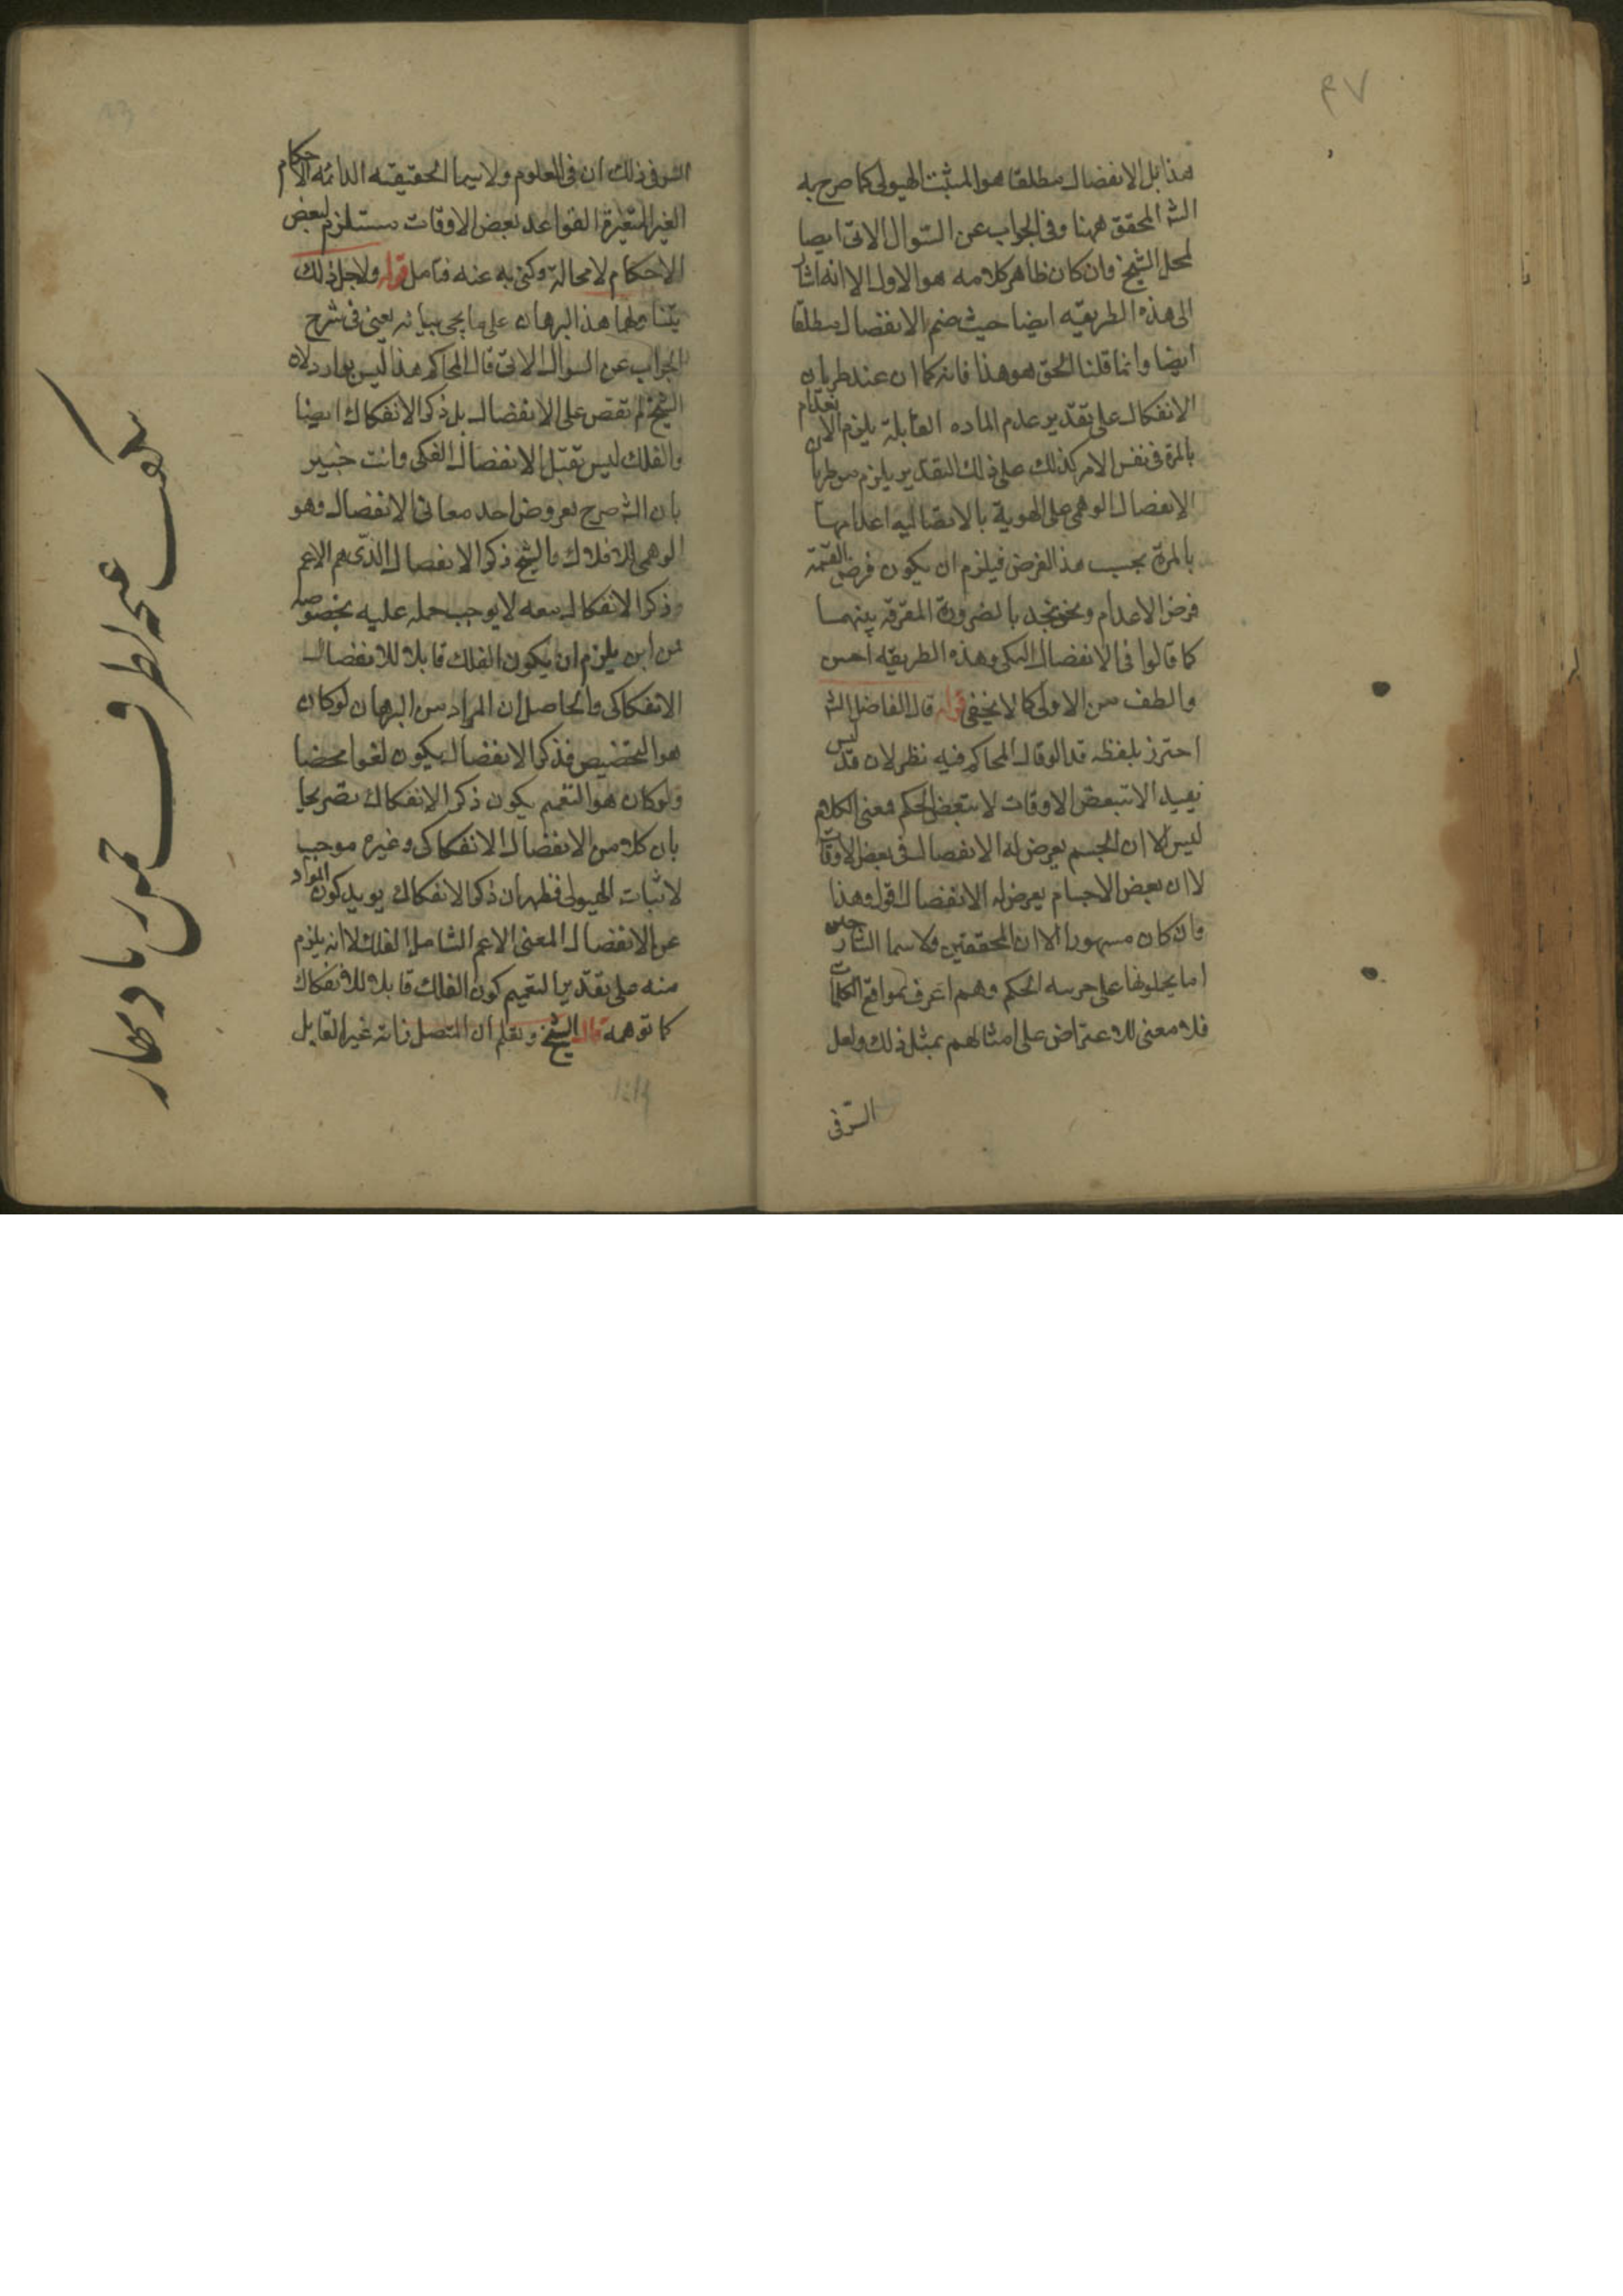 ۴۷
هذا بل الانفصال مطلقا هو المثبت للهيولى كما صرح به
الش المحقق ههنا وفى الجواب عن السوال الاتى ايضا
الشيخ وان كان ظاهر كلامه هو الاول الا انه اشار
الى هذه الطريقه ايضا حيث ضم الانفصال مطلقا
ايضا وانما قلنا الحق هو هذا فانه كما ان عند طريان
الانفكاك على تقدير عدم الماده القابلة يلزم الانعدام
بالمرة فى نفس الامر كذلك على ذلك التقدير يلزم من طريان
الانفصال الوهمى على الهوية الاتصاليه اعدامها
بالمرة بحسب هذا الفرض فيلزم ان يكون فرض القسمة
فرض الاعدام ونحن نجد بالضرورة المفرقه بينهما
كما قالوا فى الانفصال الفكى وهذه الطريقه احسن
والطف من الاولى كما لا يخفى قوله قال الفاضل الش
احترز بلفظه قد قال المحاكم فيه نظر لان قد ليس
يفيد الا تبعض الاوقات لا تبعض الحكم فمعنى الكلام
ليس الا ان الجسم يعرض له الانفصال فى بعض الاوقات
لا ان بعض الاجسام يعرض له الانفصال اقول وهذا
وان كان مشهورا الا ان المحققين ولا سيما الشارحين
اما يحملونها على جزييه الحكم وهم اعرف بمواقع الكلمات
فلا معنى للاعتراض على امثالهم بمثل ذلك ولعل
السر فى
السر فى ذلك ان فى العلوم ولا سيما الحقيقيه الدائمه الاحكام
الغير المتغيرة القواعد بعض الاوقات مستلزم لبعض
الاحكام لا محالة وكنى به عنه فتامل قوله ولاجل ذلك
يتناولهما هذا البرهان على ما يجى بيانه يعنى فى شرح
الجواب عن السوال الاتى قال المحاكم هذا ليس بوارد لان
الشيخ لم يقتصر على الانفصال بل ذكر الانفكاك ايضا
والفلك ليس يقبل الانفصال الفكى وانت خبير
بان الش صرح بعروض احد معانى الانفصال وهو
الوهمى للافلاك والشيخ ذكر الانفصال الذى هو الاعم
وذكر الانفكاك معه لا يوجب حمله عليه بخصوصه
من اين يلزم ان يكون الفلك قابلا للانفصال
الانفكاكى والحاصل ان المراد من البرهان لو كان
هو التخصيص فذكر الانفصال يكون لغوا محضا
ولو كان هو التعميم يكون ذكر الانفكاك تصريحا
بان كلا من الانفصال الانفكاكى وغيره موجب
لاثبات الهيولى فظهر ان ذكر الانفكاك يويد كون المراد
عن الانفصال المعنى الاعم الشامل الفلك لا انه يلزم
منه على تقدير التعميم كون الفلك قابلا للانفكاك
كما توهمه قال الشيخ وتعلم ان المتصل بذاته غير القابل